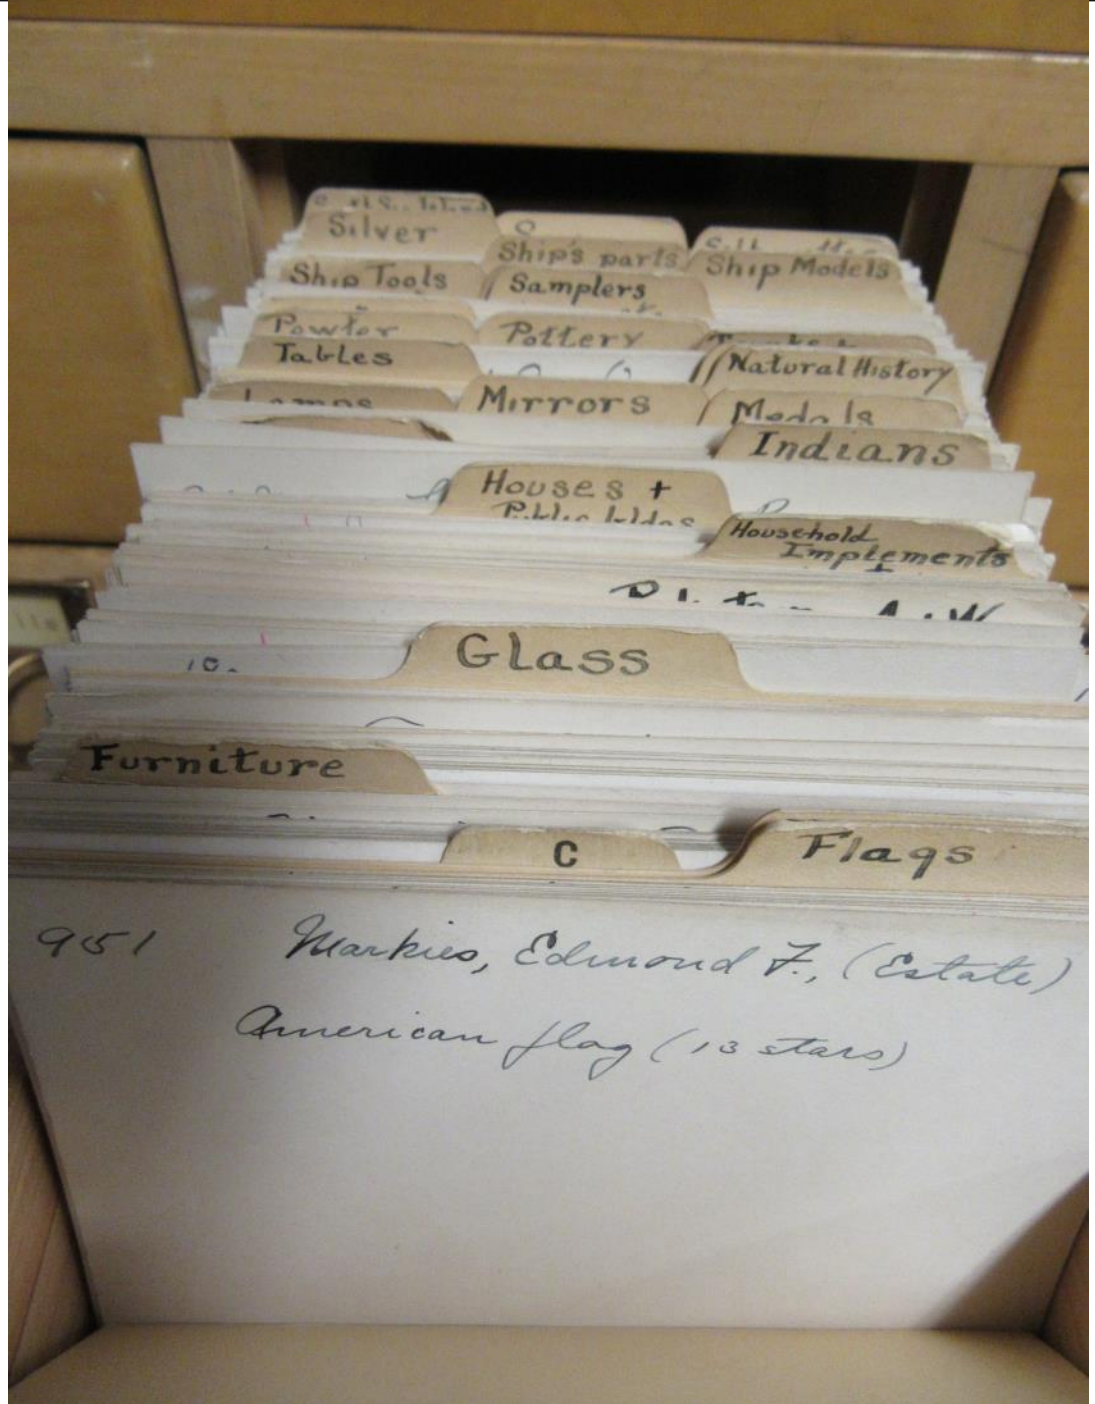 Silver
Ship's parts
Ship Models
Ship Tools
Samplers
Pewter
Pottery
Tables
Natural History
Lamps
Mirrors
Medals
Indians
Houses +
Public bldgs
Household
Implements
+
Glass
10.
Furniture
C
Flags
951 Markies, Edmond F., (Estate)
American flag (13 stars)